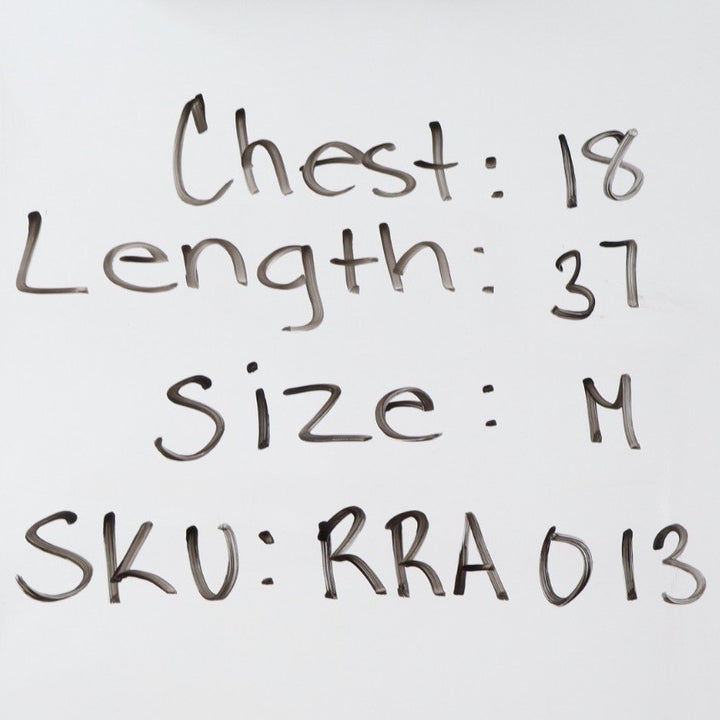 Chest: 18
Length: 37
Size: M
SKU: RRA013